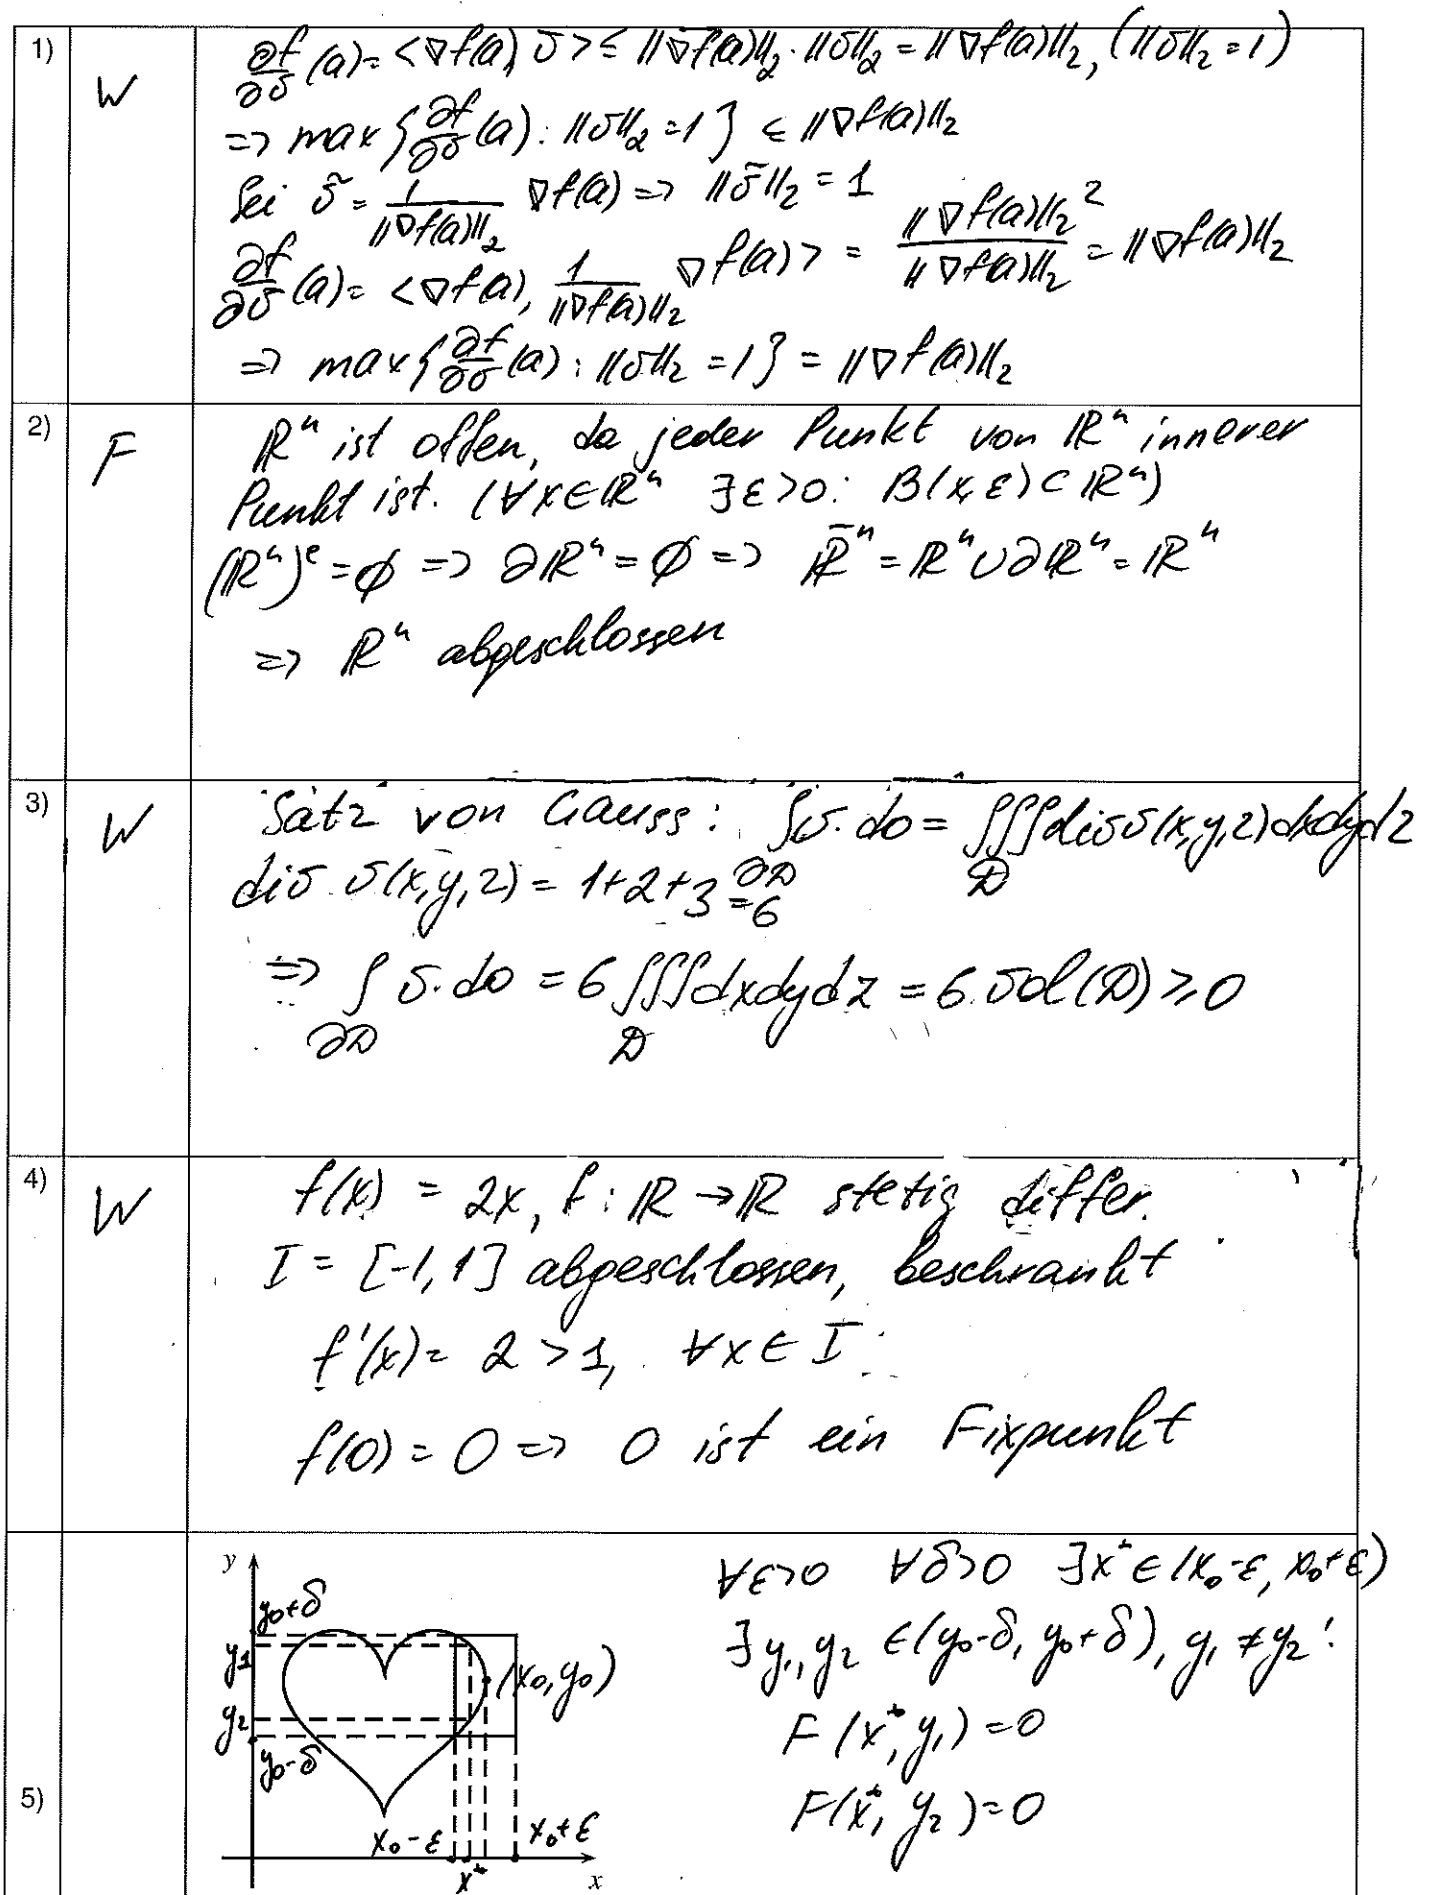 1)
W
∂f/∂v (a) = <∇f(a), v> ≤ ||∇f(a)||₂ · ||v||₂ = ||∇f(a)||₂, (||v||₂ = 1)
=> max {∂f/∂v (a) : ||v||₂ = 1} ≤ ||∇f(a)||₂
Sei ṽ = 1/||∇f(a)||₂ ∇f(a) => ||ṽ||₂ = 1
∂f/∂ṽ (a) = <∇f(a), 1/||∇f(a)||₂ ∇f(a)> = ||∇f(a)||₂² / ||∇f(a)||₂ = ||∇f(a)||₂
=> max {∂f/∂v (a) : ||v||₂ = 1} = ||∇f(a)||₂
2)
F
ℝⁿ ist offen, da jeder Punkt von ℝⁿ innerer
Punkt ist. (∀x∈ℝⁿ ∃ε>0: B(x,ε) ⊂ ℝⁿ)
(ℝⁿ)ᶜ = ∅ => ∂ℝⁿ = ∅ => ℝ̄ⁿ = ℝⁿ ∪ ∂ℝⁿ = ℝⁿ
=> ℝⁿ abgeschlossen
3)
W
Satz von Gauss: ∫_∂D v·do = ∭_D div v(x,y,z) dxdydz
div v(x,y,z) = 1+2+3 = 6
=> ∫_∂D v·do = 6 ∭_D dxdydz = 6·vol(D) ≥ 0
4)
W
f(x) = 2x, f: ℝ → ℝ stetig differ.
I = [-1,1] abgeschlossen, beschrankt
f'(x) = 2 > 1, ∀x ∈ I
f(0) = 0 => 0 ist ein Fixpunkt
5)
y
y₀+δ
y₁
y₂
y₀-δ
(x₀,y₀)
x₀-ε
x*
x₀+ε
x
∀ε>0 ∀δ>0 ∃x* ∈ (x₀-ε, x₀+ε)
∃y₁,y₂ ∈ (y₀-δ, y₀+δ), y₁ ≠ y₂:
F(x*, y₁) = 0
F(x*, y₂) = 0